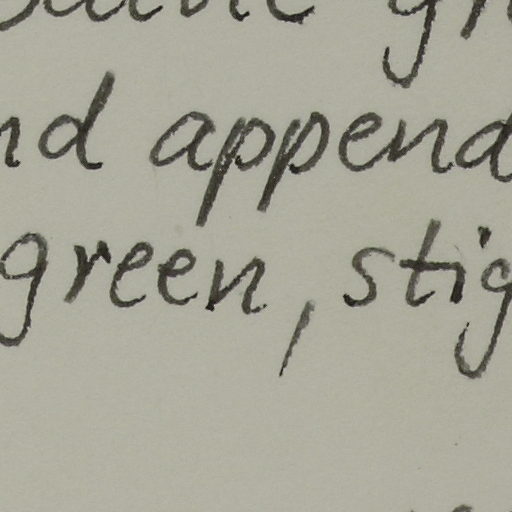 nd append
green, stig